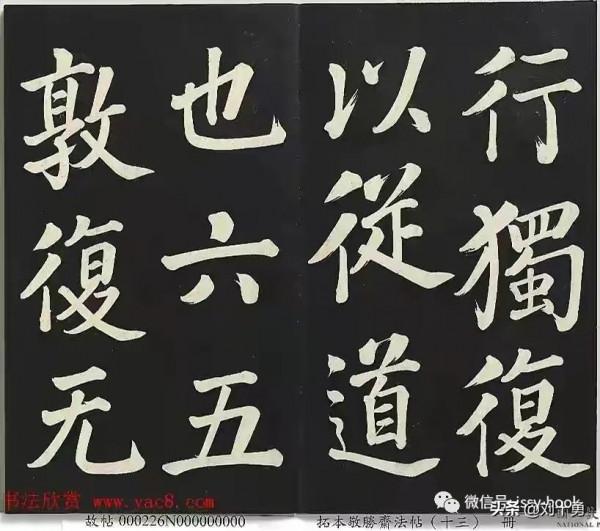 行獨復
以從道
也六五
敦復无
书法欣赏 www.yac8.com
微信号: jssy-hook
头条 @刘十勇
故帖 000226N000000000
拓本敬勝齋法帖（十三） 冊
NATIONAL